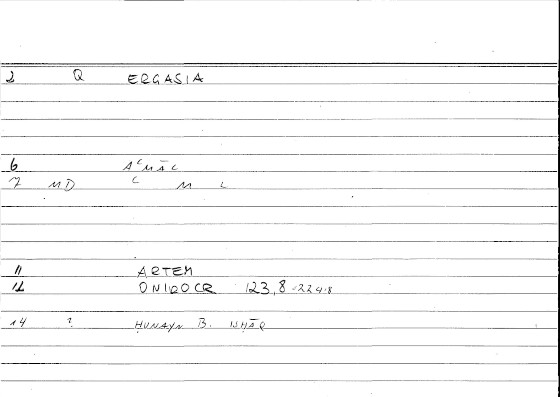 2 Q ERGASIA
6 AʿMĀL
7 MD ʿ M L
11 ARTEM
12 ONIROCR 123,8-224.8
14 ? ḤUNAYN B. ISḤĀQ